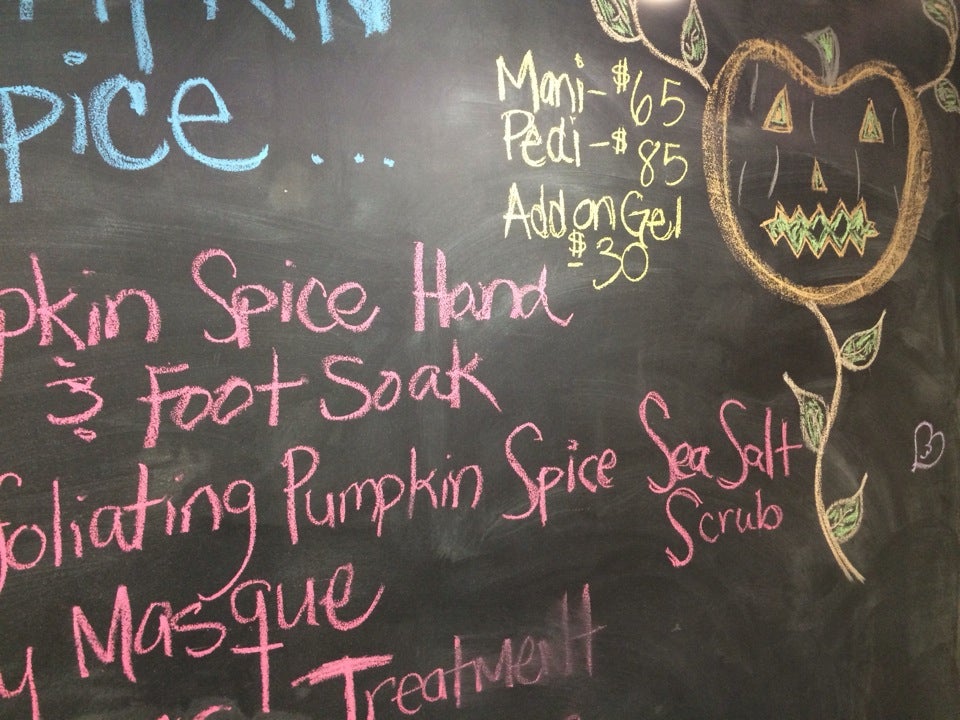 pice ...
Mani - $65
Pedi - $85
Add on Gel
$30
pkin Spice Hand
& Foot Soak
foliating Pumpkin Spice Sea Salt
Scrub
y Masque
Treatment